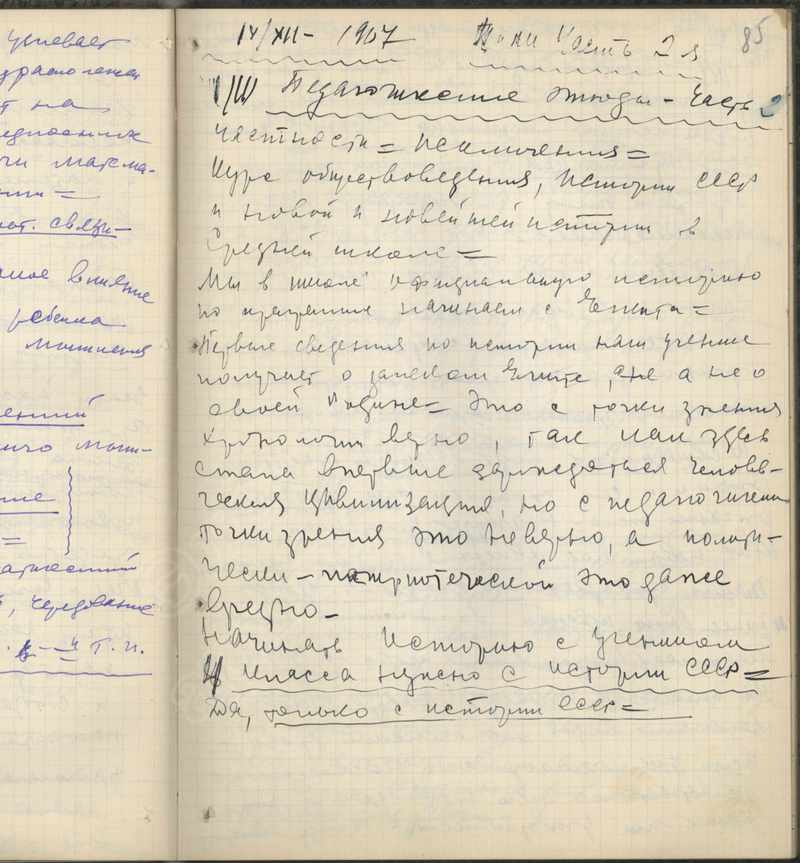 успевает
на
матема-
связи-
влияние
ребенка
мышления
мыш-
чередование
и т.п.
14/XII- 1967 Часть 2я 85
Педагогические этюды - Часть 2
Частности = исключения =
Курс обществоведения, истории СССР
и новой и новейшей истории в
Средней школе =
Мы в школе официальную историю
по программе начинаем с Египта =
Первые сведения по истории наш ученик
получает о далеком Египте, а не о
своей Родине = Это с точки зрения
хронологии верно, так как здесь
стала впервые зарождаться человe-
ческая цивилизация, но с педагогической
точки зрения это неверно, а полити-
чески-патриотической это даже
вредно-
Начинать историю с учеником
класса нужно с истории СССР =
Да, только с истории СССР =